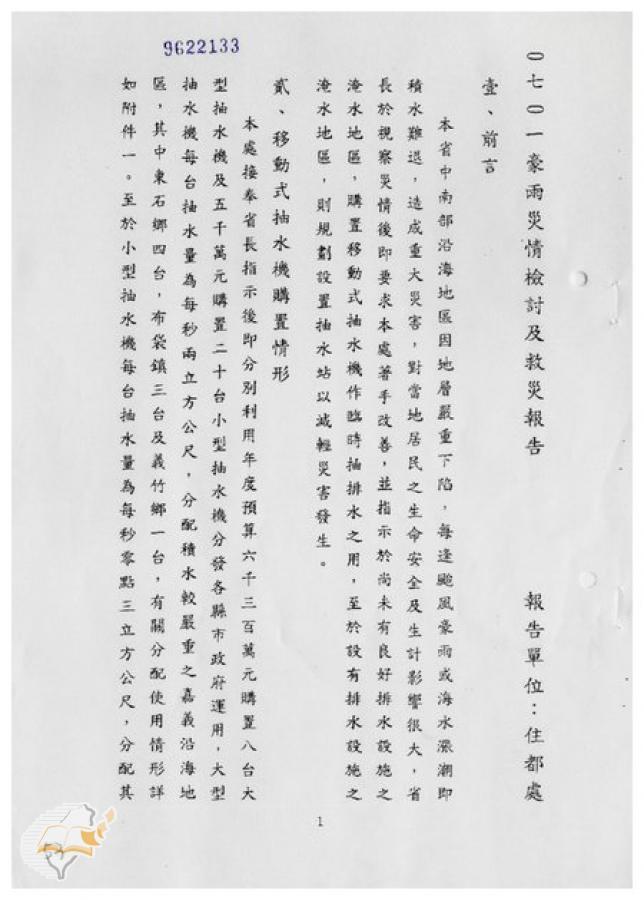 9622133
０七０一豪雨災情檢討及救災報告　報告單位：住都處
壹、前言
本省中南部沿海地區因地層嚴重下陷，每逢颱風豪雨或海水漲潮即
積水難退，造成重大災害，對當地居民之生命安全及生計影響很大，省
長於視察災情後即要求本處著手改善，並指示於尚未有良好排水設施之
淹水地區，購置移動式抽水機作臨時抽排水之用，至於設有排水設施之
淹水地區，則規劃設置抽水站以減輕災害發生。
貳、移動式抽水機購置情形
本處接奉省長指示後即分別利用年度預算六千三百萬元購置八台大
型抽水機及五千萬元購置二十台小型抽水機分發各縣市政府運用，大型
抽水機每台抽水量為每秒兩立方公尺，分配積水較嚴重之嘉義沿海地
區，其中東石鄉四台，布袋鎮三台及義竹鄉一台，有關分配使用情形詳
如附件一。至於小型抽水機每台抽水量為每秒零點三立方公尺，分配其
1
53